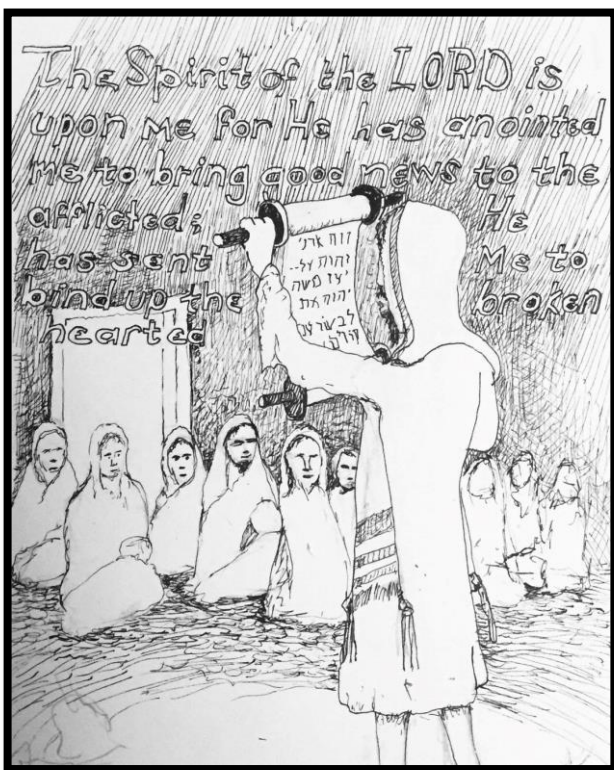 The Spirit of the LORD is
upon me for He has anointed
me to bring good news to the
afflicted; He
has sent Me to
bind up the broken
hearted
רוח אדני
יהוה על--
יען משח
יהוה את